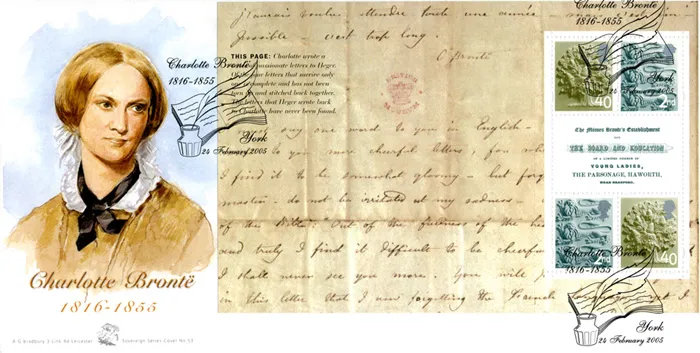 j'aurais voulu attendre toute une année
possible - c'est trop long.
C Brontë
THIS PAGE: Charlotte wrote a
passionate letters to Heger.
Of the letters that survive only
one is complete and has not been
torn up and stitched back together.
The letters that Heger wrote back
to Charlotte have never been
BRITISH
MUSEUM
Charlotte Brontë
1816-1855
York
24 February 2005
say one word to you in English -
to you more cheerful letters, for
I find it to be somewhat gloomy - but
master - do not be irritated at my sadness -
of the Bible: "Out of the fullness of the
and truly I find it difficult to be cheerful
I shall never see you more. You will
in this letter that I am forgetting the French
Charlotte Brontë
1816-1855
A G Bradbury 3 Link Rd Leicester
Sovereign Series Cover No 13
Charlotte Brontë
1816-1855
York
24 February 2005
40
2nd
The Misses Brontë's Establishment
FOR
THE BOARD AND EDUCATION
OF A LIMITED NUMBER OF
YOUNG LADIES,
THE PARSONAGE, HAWORTH,
NEAR BRADFORD.
2nd
40
Charlotte Brontë
1816-1855
York
24 February 2005